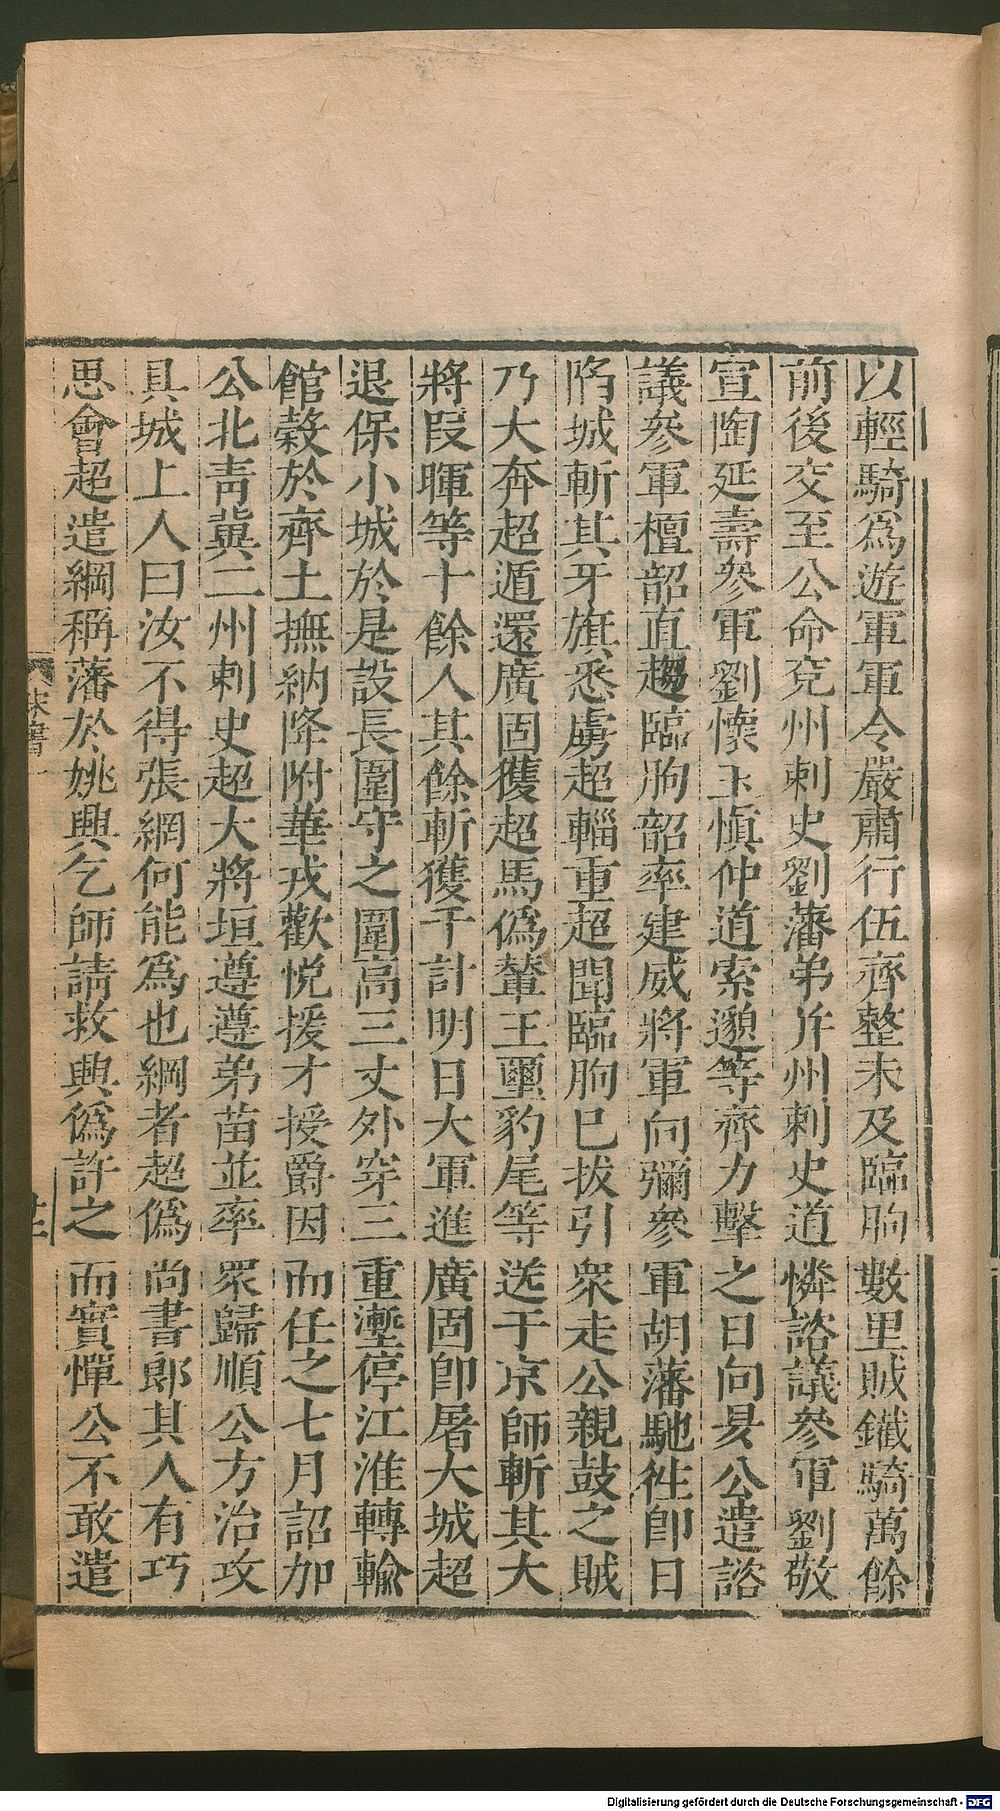 以輕騎爲遊軍軍令嚴肅行伍齊整未及臨朐數里賊鐵騎萬餘
前後交至公命兗州刺史劉藩弟幷州刺史道憐諮議參軍劉敬
宣陶延壽參軍劉懷玉愼仲道索邈等齊力擊之日向昃公遣諮
議參軍檀韶直趨臨朐韶率建威將軍向彌參軍胡藩馳徃卽日
陷城斬其牙旗悉虜超輜重超聞臨朐巳拔引衆走公親鼓之賊
乃大奔超遁還廣固獲超馬僞輦王璽豹尾等送于京師斬其大
將段暉等十餘人其餘斬獲千計明日大軍進廣固卽屠大城超
退保小城於是設長圍守之圍高三丈外穿三重壍停江淮轉輸
館穀於齊土撫納降附華戎歡悅援才授爵因而任之七月詔加
公北靑冀二州刺史超大將垣遵遵弟苗並率衆歸順公方治攻
具城上人曰汝不得張綱何能爲也綱者超僞尚書郎其人有巧
思會超遣綱稱藩於姚興乞師請救興僞許之而實憚公不敢遣
宋書一
Digitalisierung gefördert durch die Deutsche Forschungsgemeinschaft - DFG